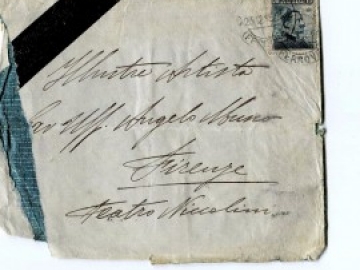 Illustre Artista
Cav Uff. Angelo Musco
Firenze
Teatro Niccolini